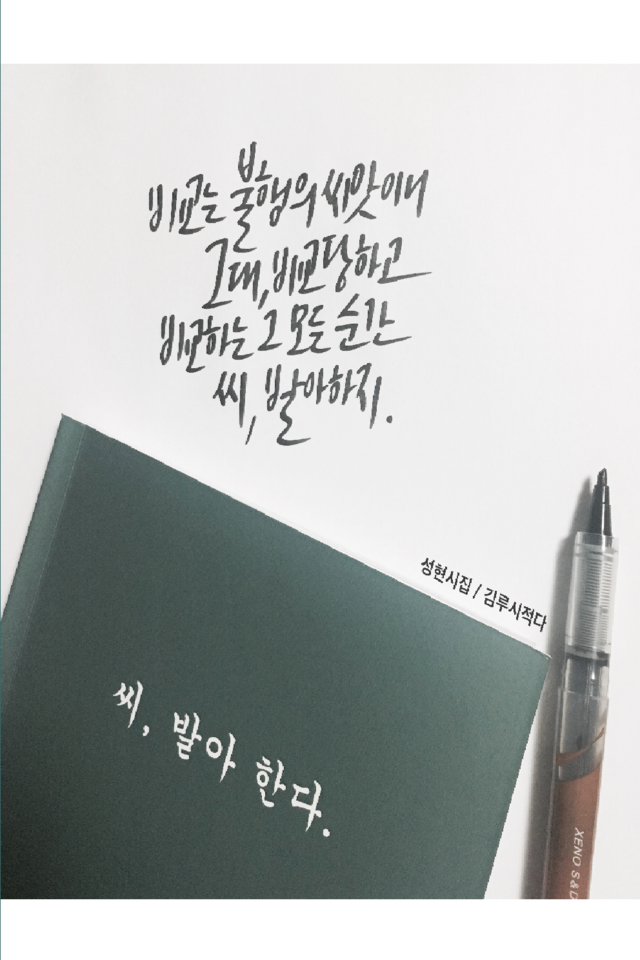 비교는 불행의 씨앗이니
그대, 비교당하고
비교하는 그 모든 순간
씨, 발아하지.
성현시집 / 김루시적다
씨, 발아 한다.
XENO S&D